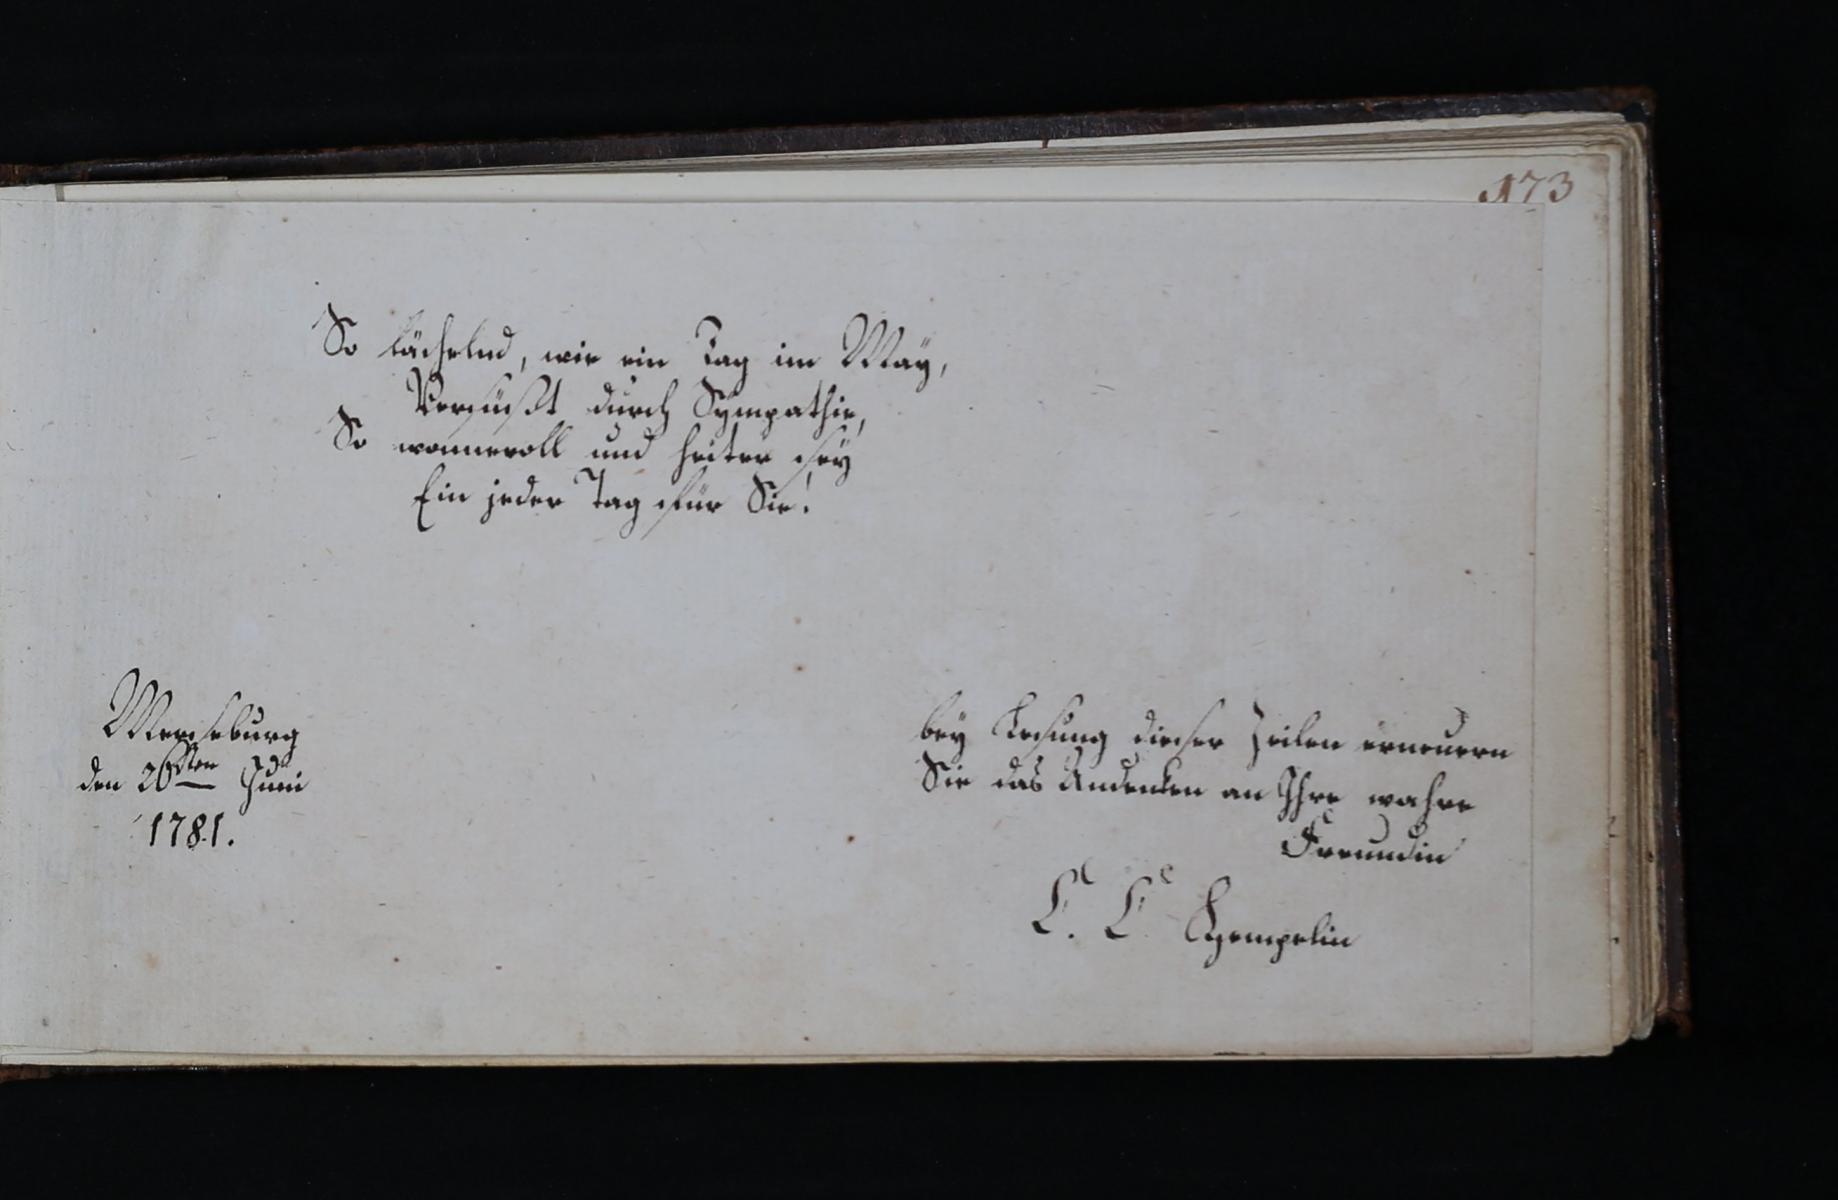 173
So lächelnd, wie ein Tag im May,
Versüßt durch Sympathie,
So wonnevoll und heiter sey
Ein jeder Tag für Sie!
Merseburg
den 26sten Juni
1781.
bey Lesung dieser Zeilen erneuern
Sie das Andenken an Ihre wahre
Freundin
C. C.